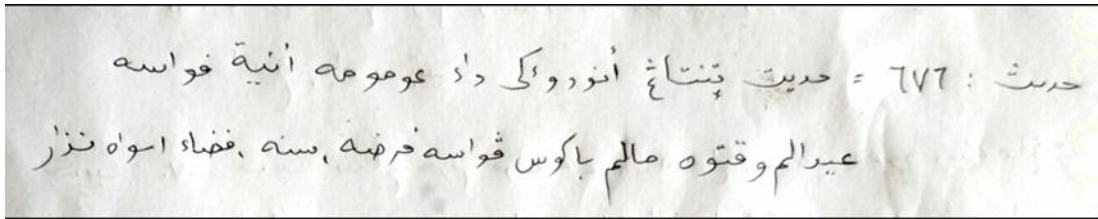 حديث : ٦٧٦ = حديث تنتاڠ أنوروڬى داء عومومه أنية فواسه
عيدالم وقتوه مالم باكوس ڤواسه فرضه . سنه . فضاء اسواه نذار